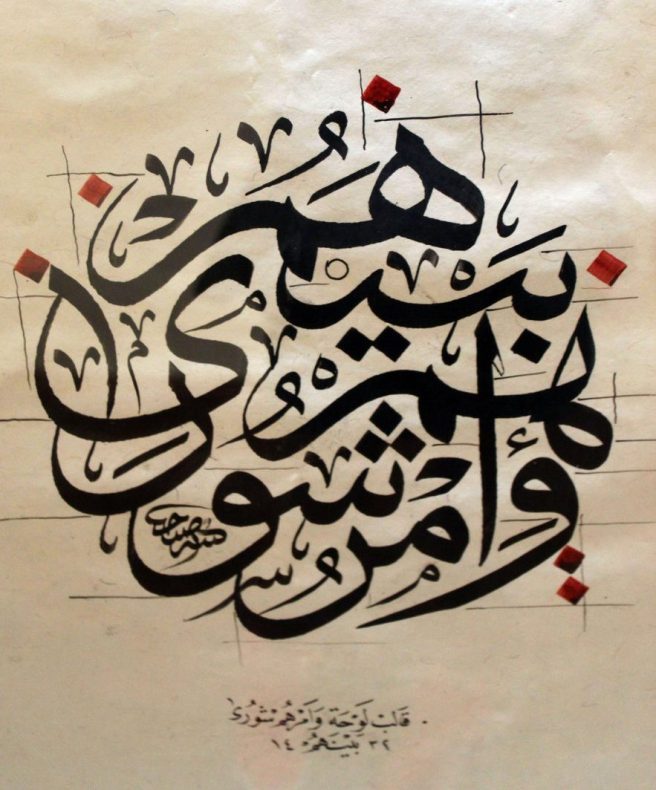 وأمرهم شورى بينهم
قالب لوحة وَامرُهم شورى
بَيْنَهُم ١٤٣٢